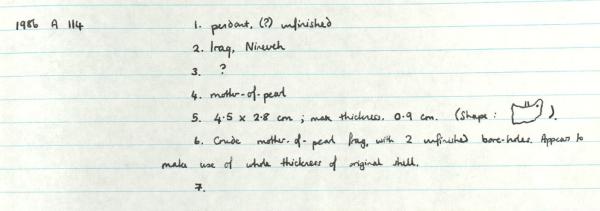 1986 A 114 1. pendant, (?) unfinished
2. Iraq, Nineveh
3. ?
4. mother-of-pearl
5. 4.5 x 2.8 cm ; max thickness. 0.9 cm. (Shape : ).
6. Crude mother-of-pearl frag, with 2 unfinished bore-holes. Appears to
make use of whole thickness of original shell.
7.